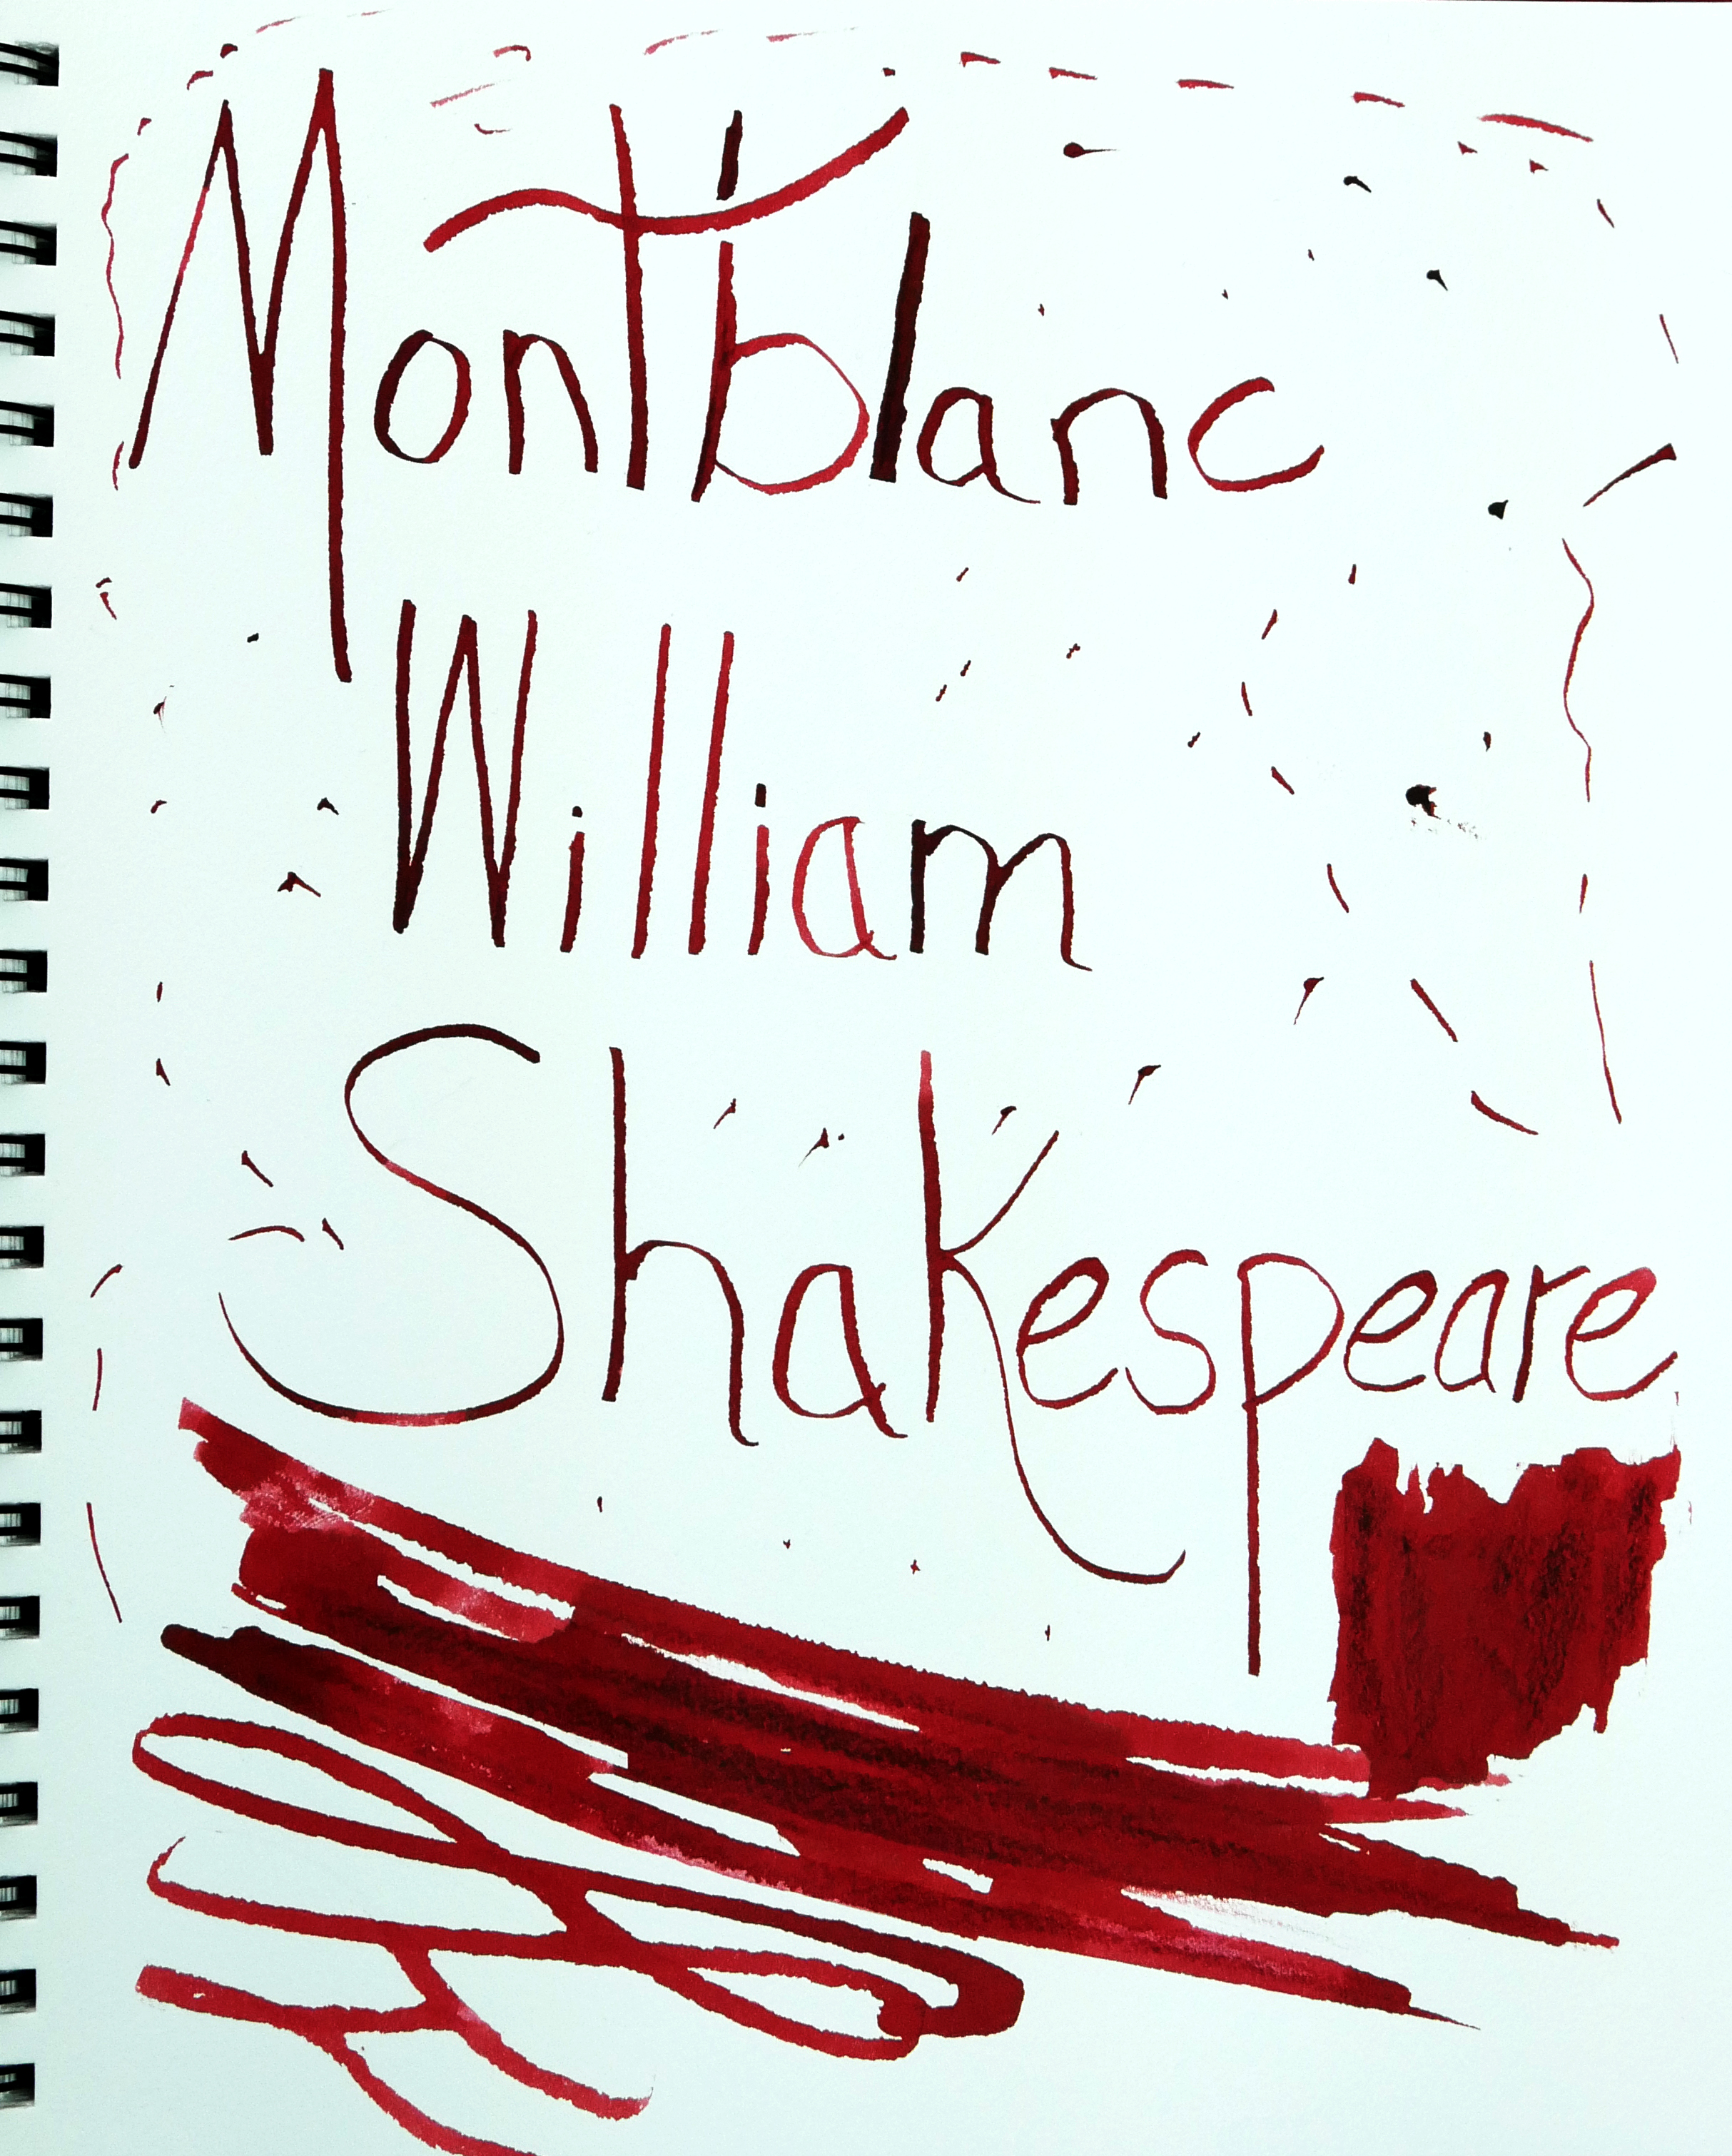 Montblanc
William
Shakespeare